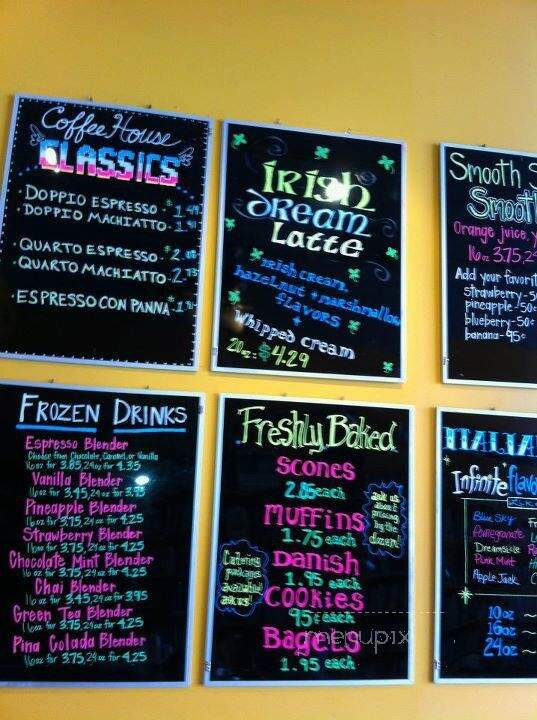 Coffee House
CLASSICS
· DOPPIO ESPRESSO · $1.49
DOPPIO MACHIATTO ·
· QUARTO ESPRESSO ·
· QUARTO MACHIATTO ·
· ESPRESSO CON PANNA ·
iRiSh
dREam
Latte
Irish cream,
hazelnut + marshmallow
flavors
+
Whipped cream
20oz: $4.29
Smooth
Orange juice,
16oz 3.75, 24
Add your
strawberry - 50¢
pineapple - 50¢
blueberry - 50¢
banana - 95¢
FROZEN DRINKS
Espresso Blender
Choose from Chocolate, Caramel, or Vanilla
16 oz for 3.85, 24 oz for 4.35
Vanilla Blender
16 oz for 3.45, 24 oz for 3.95
Pineapple Blender
16 oz for 3.75, 24 oz for 4.25
Strawberry Blender
16 oz for 3.75, 24 oz for 4.25
Chocolate Mint Blender
16 oz for 3.75, 24 oz for 4.25
Chai Blender
16 oz for 3.45, 24 oz for 3.95
Green Tea Blender
16 oz for 3.75, 24 oz for 4.25
Pina Colada Blender
16 oz for 3.75, 24 oz for 4.25
Freshly Baked
Scones
2.85 each
Muffins
1.75 each
Danish
1.95 each
Cookies
95¢ each
Bagels
1.95 each
ask us
about
pricing
by the
dozen!
Catering
packages
available
ask us!
menupix
ITALIA
Infinite
Blue Sky
Pomegranate
Dreamsicle
Punk Mint
Apple Jack
10oz
16oz ~
24oz ~